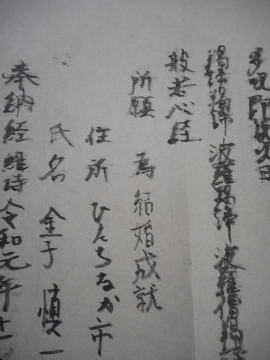 多呪即説呪曰
羯諦羯諦 波羅羯諦 波羅僧羯諦
般若心経
所願 為結婚成就
住所 ひたちなか市
氏名 金子慎一
奉納経 維時令和元年十一